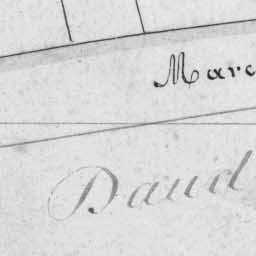 Marc
Daud